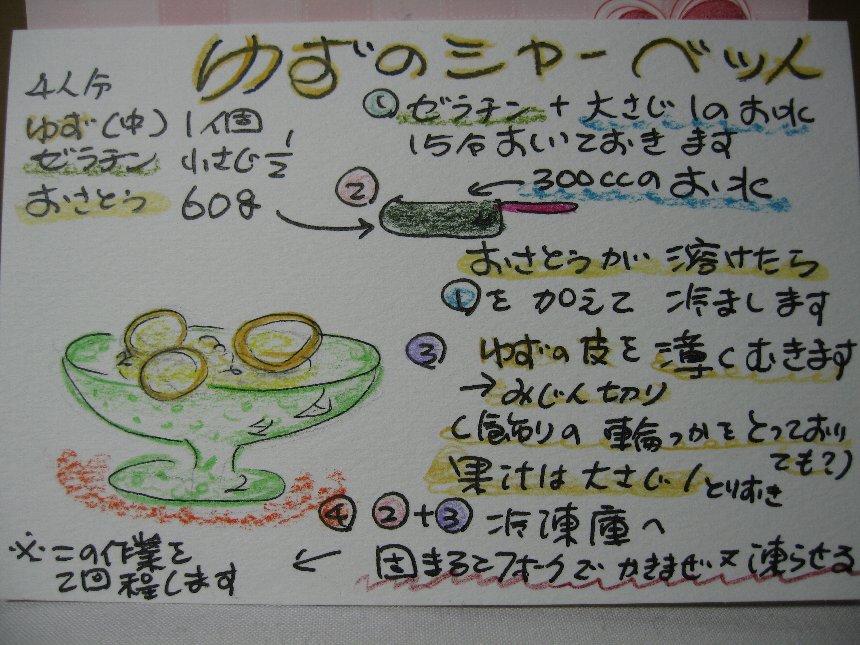 ゆずのシャーベット
4人分
ゆず(中) 1個
ゼラチン 小さじ1/2
おさとう 60g
① ゼラチン + 大さじ1のお水
15分おいておきます
② ← 300ccのお水
おさとうが 溶けたら
①を加えて 冷まします
③ ゆずの皮を薄くむきます
→ みじん切り
(飾りの輪っかをとっておい
ても?)
果汁は大さじ1とりすき
④ ②+③ 冷凍庫へ
固まるとフォークでかきまぜ又凍らせる
※この作業を
2回程します